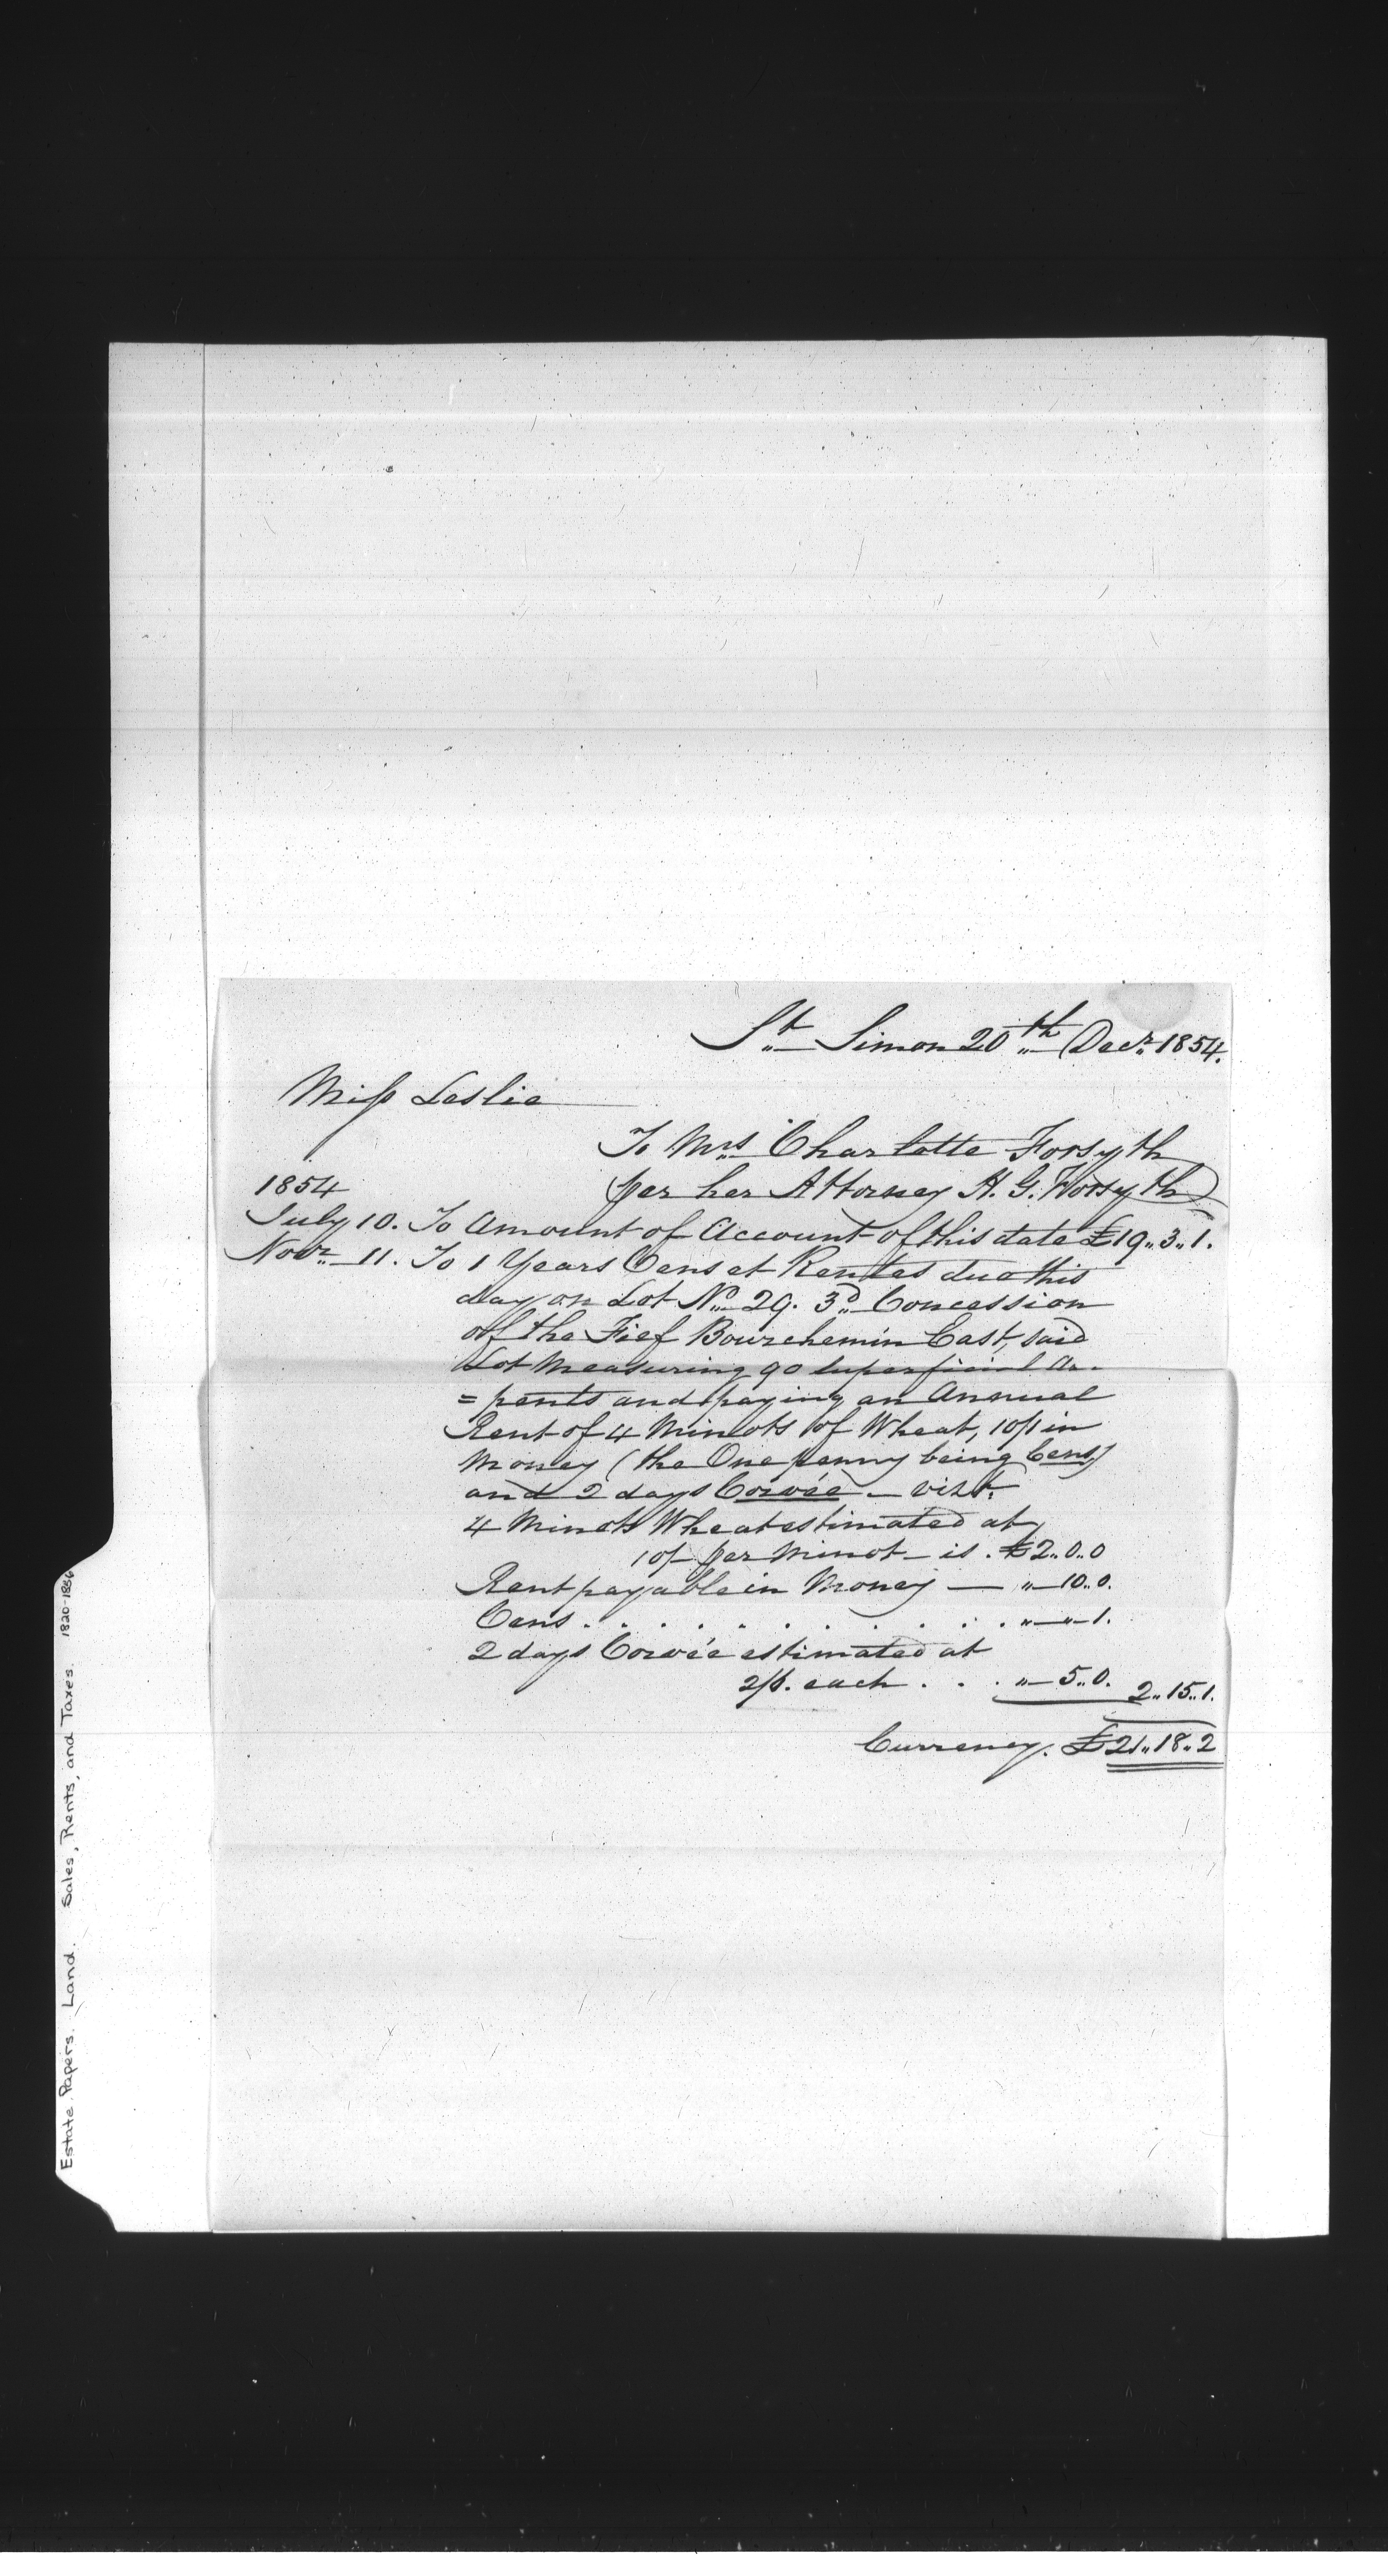 St. Simon 20th Decr. 1854.
Miss Leslie
To Mrs. Charlotte Forsyth
per her Attorney H. G. Forsyth
1854
July 10. To Amount of Account of this date £19..3..1.
Novr. 11. To 1 Years Cens et Rentes due this
day on Lot No. 29. 3d. Concession
of the Fief Bourchemin East, said
Lot measuring 90 superficial Ar-
=pents and paying an Annual
Rent of 4 Minots of Wheat, 10/1 in
Money (the One penny being Cens)
and 2 days Corvée — vizt.
4 Minots Wheat estimated at
10/- per Minot - is . £2..0..0
Rent payable in Money — " — 10..0.
Cens . . . . . . . . . . . " — " — 1.
2 days Corvée estimated at
2/6. each . . . " — 5..0. 2..15..1.
Currency. £21..18..2
Estate Papers. Land. Sales, Rents, and Taxes. 1820-1856